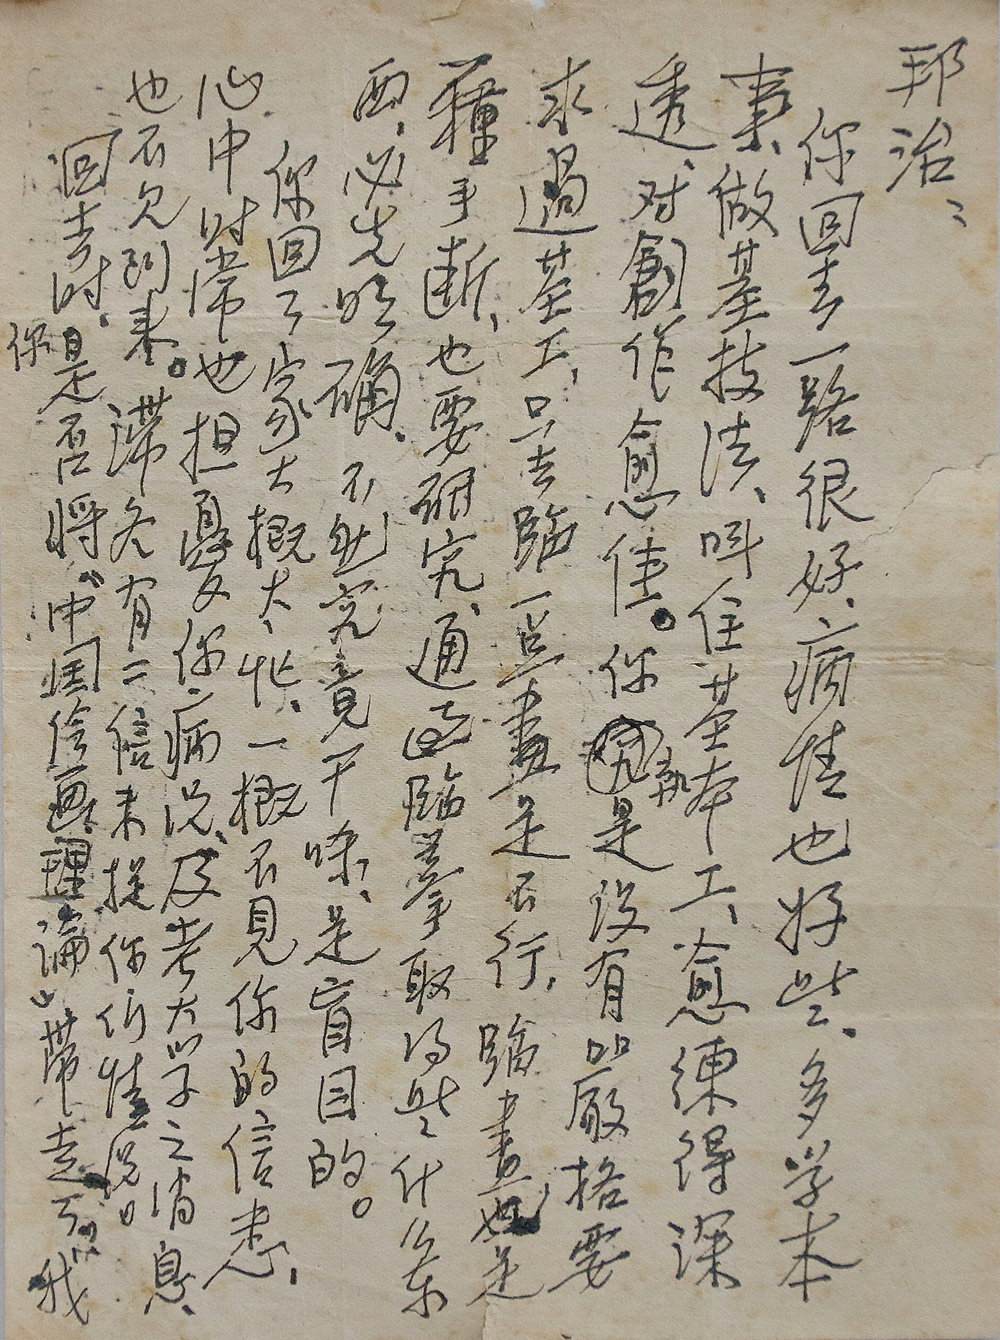 邦治：
你回去一路很好，病情也好些，多学本
事，做基技法，叫住基本工，愈练得深
透，对創作愈佳。你執是没有严嚴格要
求過基工，只去臨一豆畫是否行，臨畫也是
一種手断，也要研究，通过臨摹取得些什么东
西，必先明确，不然究竟干啥，是盲目的。
你回了家大概大忙，一概不見你的信悉，
心中时常也担憂你病况，及考大学之消息，
也不见到来。滞各有二信未提你们情况。
回去时，你是否将“中国绘画理論”带走了，我